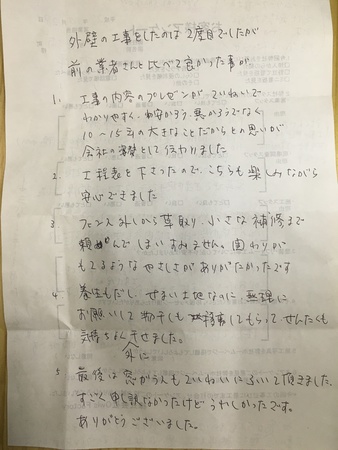 外壁の工事をしたのは2度目でしたが
前の業者さんと比べて良かった事が
1. 工事の内容のプレゼンが、ていねいで
わかりやすく、安かろう、悪かろうでなく
10〜15年の大きなことだからとの思いが
会社の姿勢として伝わりました
2. 工程表を下さったので、こちらも楽しみながら
安心できました
3 フェンス外しから草取り、小さな補修まで
頼んでしまいすみません。関わりが
もてるような やさしさが ありがたかったです
4 養生もだし、せまい土地なのに、無理に
お願いして 物干しも してもらって、せんたくも
気持ちよく 外に 干せました。
5 最後は窓がうんもていねいにふいて頂きました。
すごく申し訳なかったけど うれしかったです。
ありがとうございました。